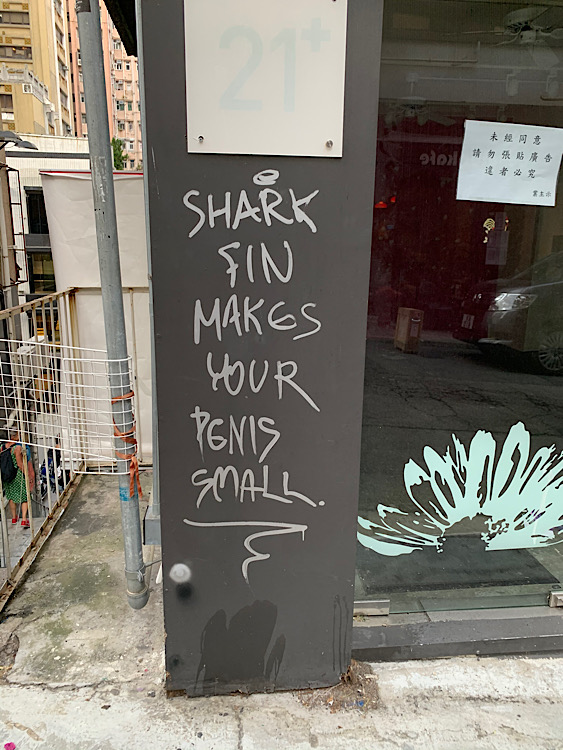 21+
SHARK
FIN
MAKES
YOUR
PENIS
SMALL.
未經同意
請勿張貼廣告
違者必究
業主示